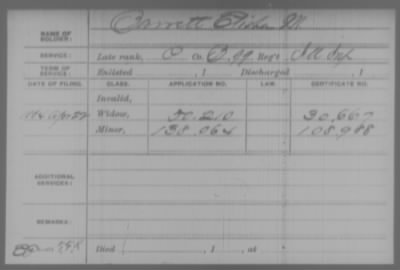 NAME OF SOLDIER: Garrett Elisha M.
SERVICE: Late rank, C Co. B, 99 Reg't Ill Inf
TERM OF SERVICE: Enlisted , 1 Discharged , 1
DATE OF FILING. CLASS. APPLICATION NO. LAW. CERTIFICATE NO.
Invalid,
Widow, 30,667
Minor, 138,064 108,988
ADDITIONAL SERVICES:
REMARKS:
Died , 1 , at